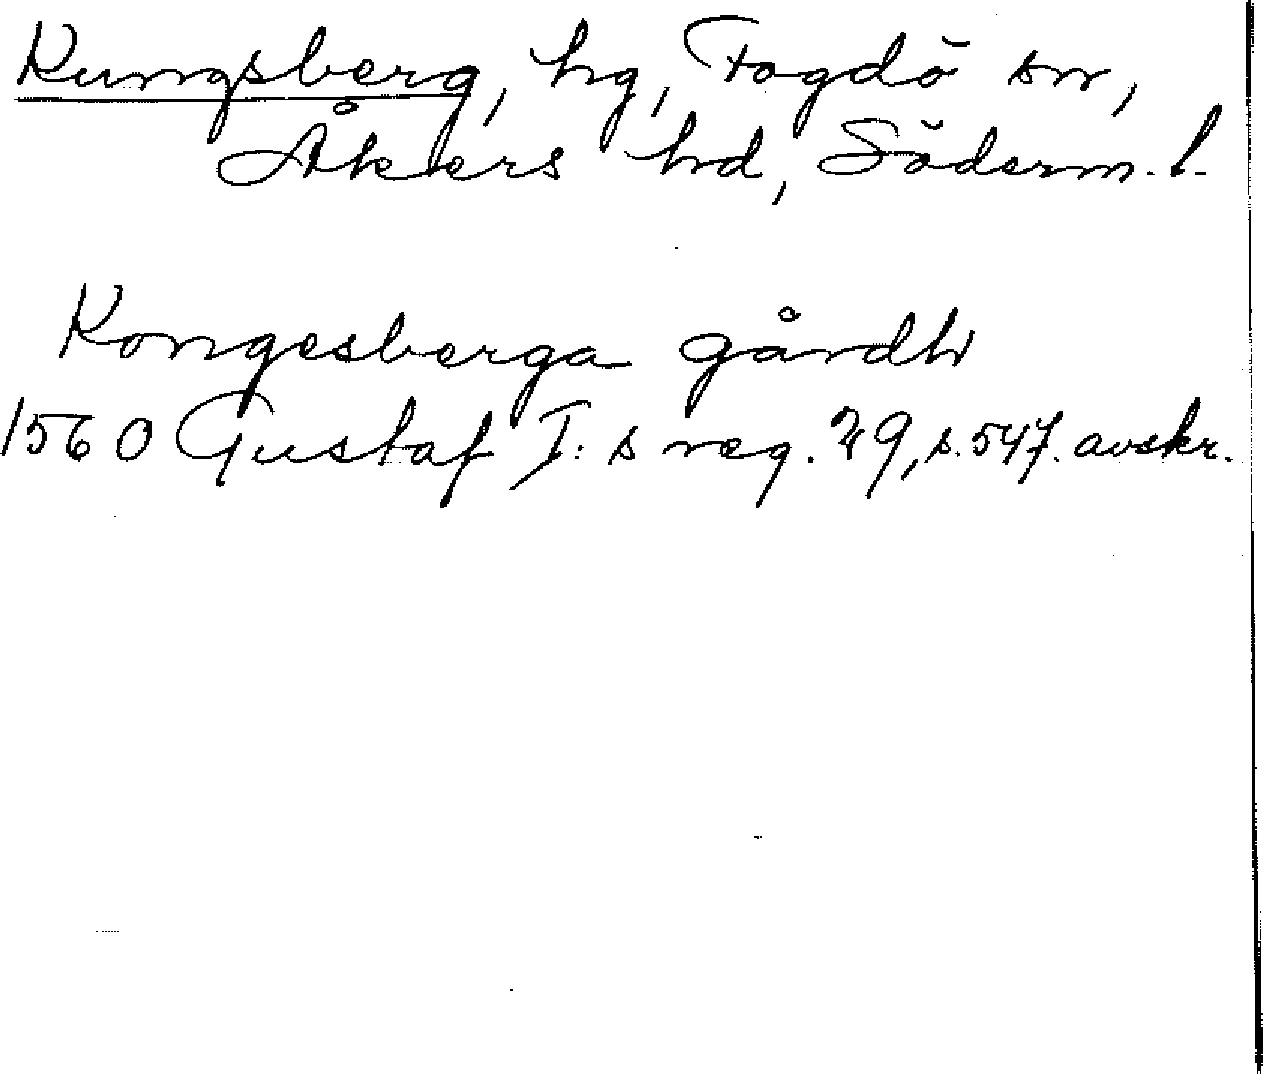 Kungsberg, hg, Fogdö sn,
Åkers hd, Söderm. l.
Kongesberga gårdh
1560 Gustaf I: s reg. 29, s. 547. avskr.